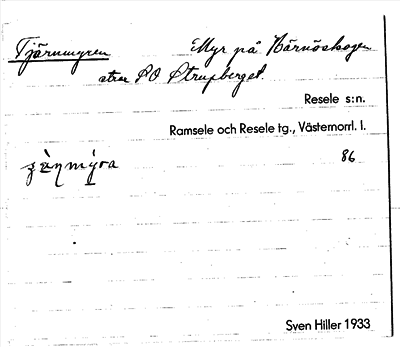 Tjärnmyren Myr på Närnöskogen
strax SO Strupberget
Resele s:n.
Ramsele och Resele tg., Västernorrl. l.
86
Sven Hiller 1933